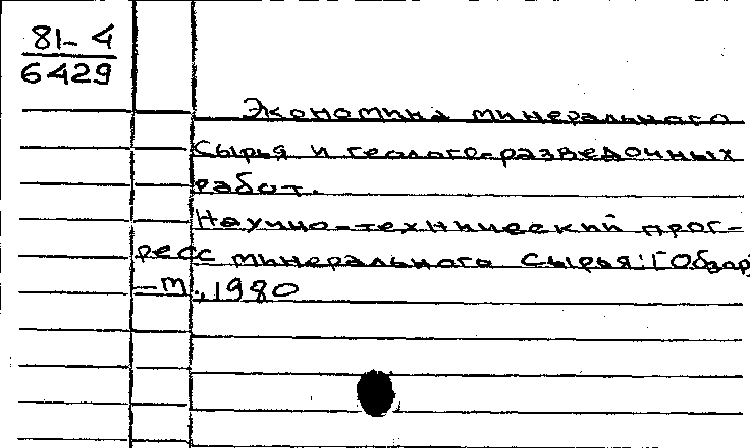 81-4
6429
Экономика минерального
сырья и геолого-разведочных
работ.
Научно-технический прог-
ресс минерального сырья: [Обзор]
-М., 1980